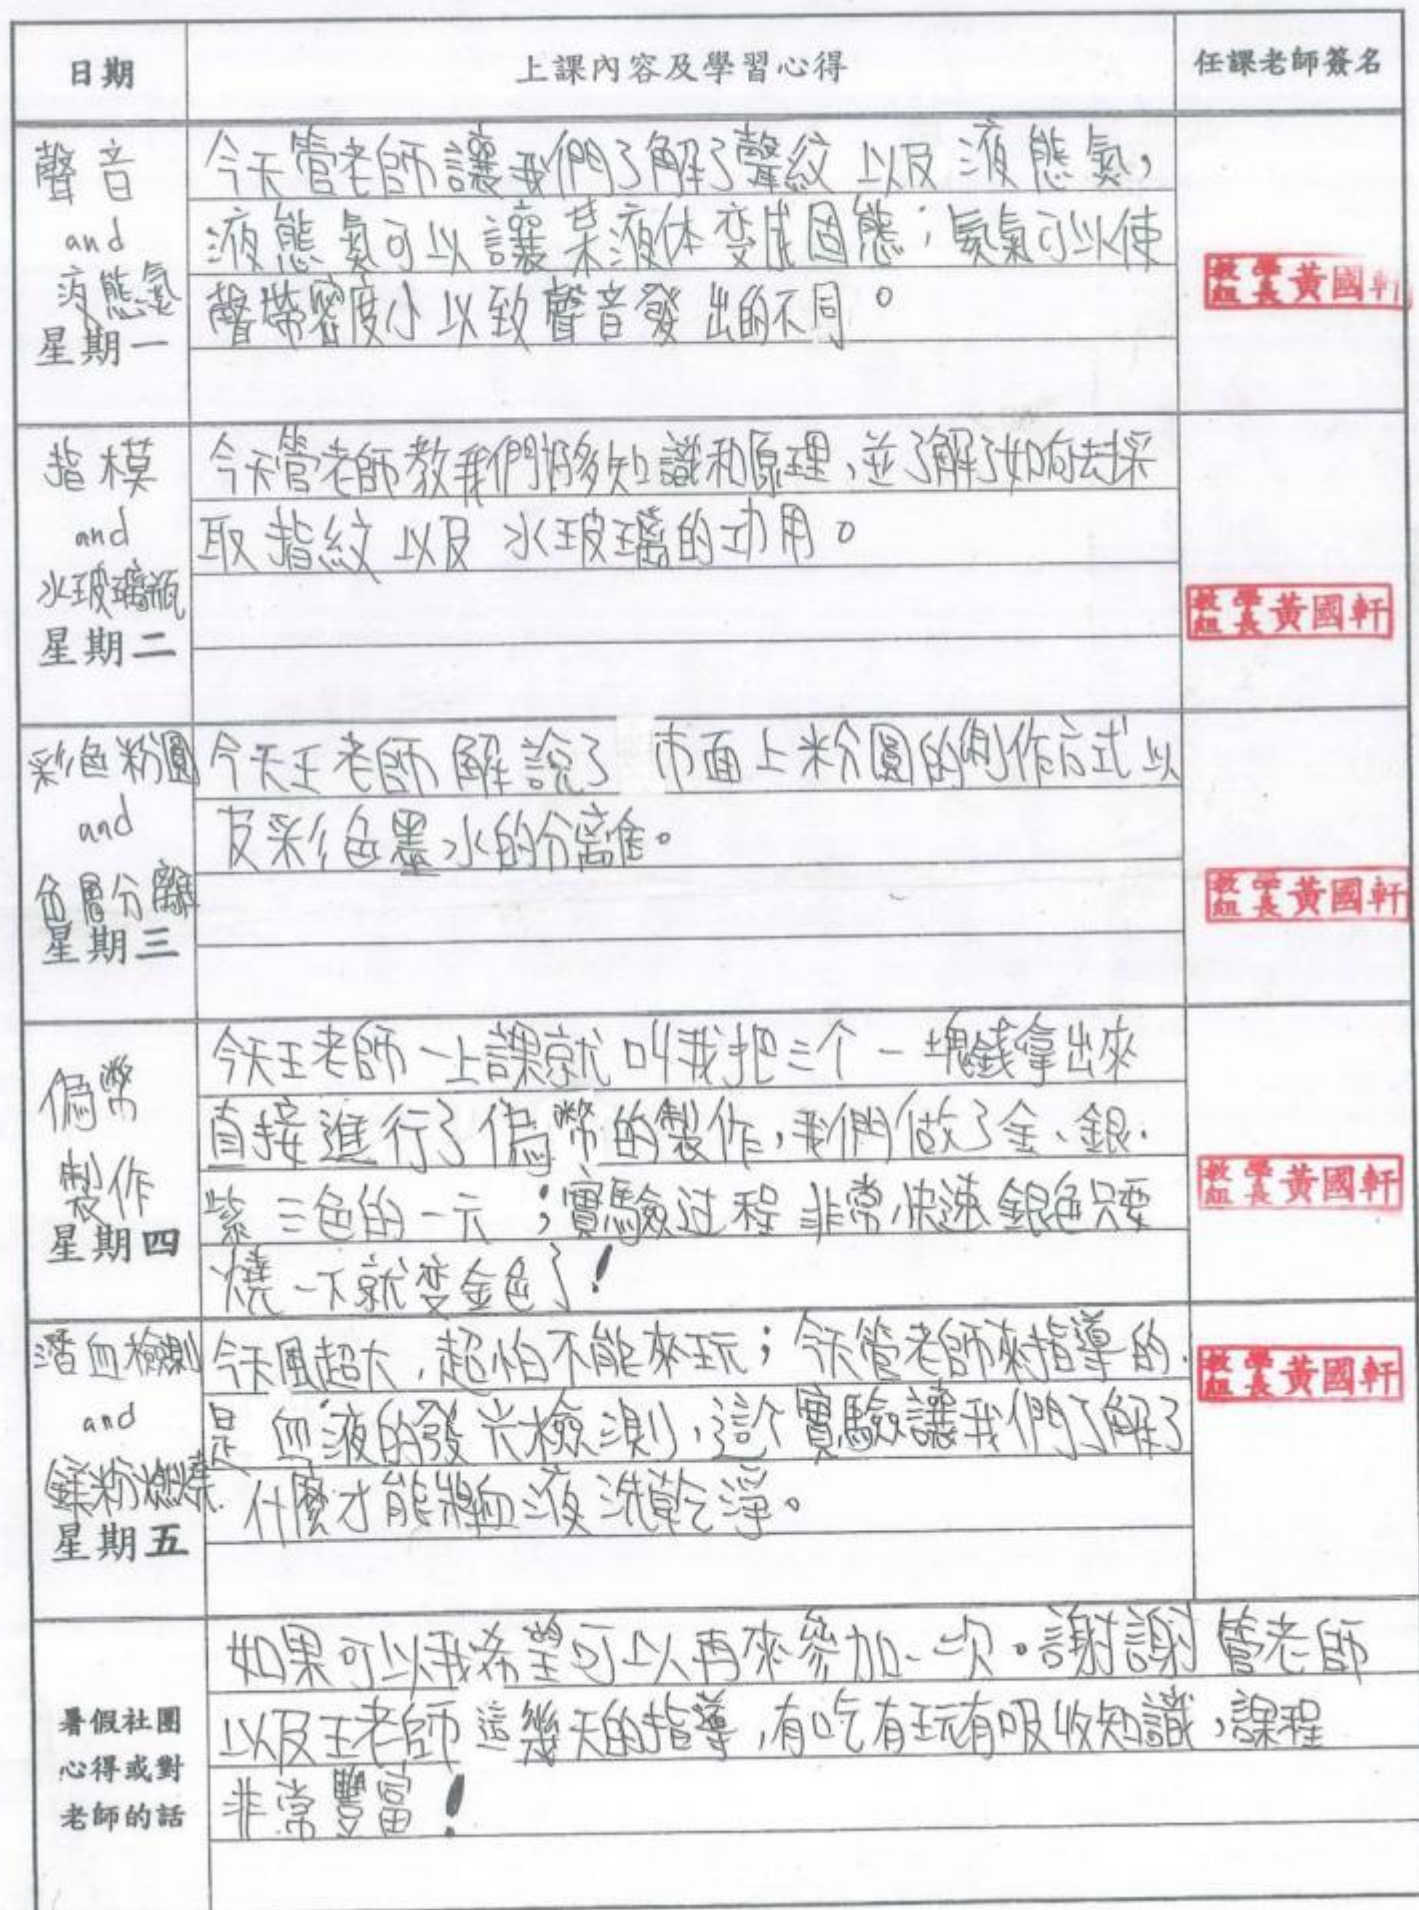 日期
上課內容及學習心得
任課老師簽名
聲音
and
液態氮
星期一
今天管老師讓我們了解了聲紋以及液態氮,
液態氮可以讓某液体变成固態;氦氣可以使
聲帶密度小以致聲音發出的不同。
教學組長黃國軒
指模
and
水玻璃瓶
星期二
今天管老師教我們好多知識和原理,並了解了如何去採
取指紋以及水玻璃的功用。
教學組長黃國軒
彩色粉圓
and
色層分離
星期三
今天王老師解說了市面上粉圓的制作方式以
及彩色墨水的分離。
教學組長黃國軒
偽幣
製作
星期四
今天王老師一上課就叫我把三个一塊錢拿出來
直接進行了偽幣的製作,我們做了金、銀、
紫三色的一元;實驗过程非常快速銀色只要
燒一下就变金色了!
教學組長黃國軒
潛血檢測
and
鎂粉燃燒
星期五
今天風超大,超怕不能來玩;今天管老師來指導的
是血液的發光檢測,這个實驗讓我們了解了
什麼才能將血液洗乾淨。
教學組長黃國軒
暑假社團
心得或對
老師的話
如果可以我希望可以再來參加一次。謝謝管老師
以及王老師這幾天的指導,有吃有玩有吸收知識,課程
非常豐富!